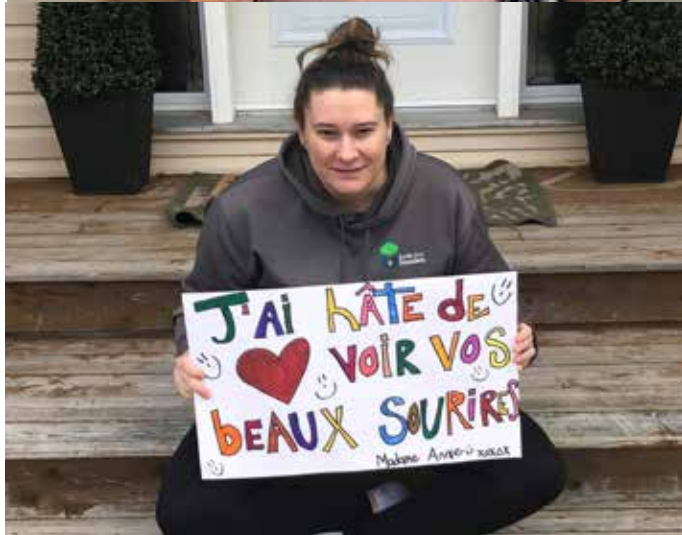 J'Ai hÂTE dE
VOiR VOS
bEAUX SOURiRES
Madame xoxox